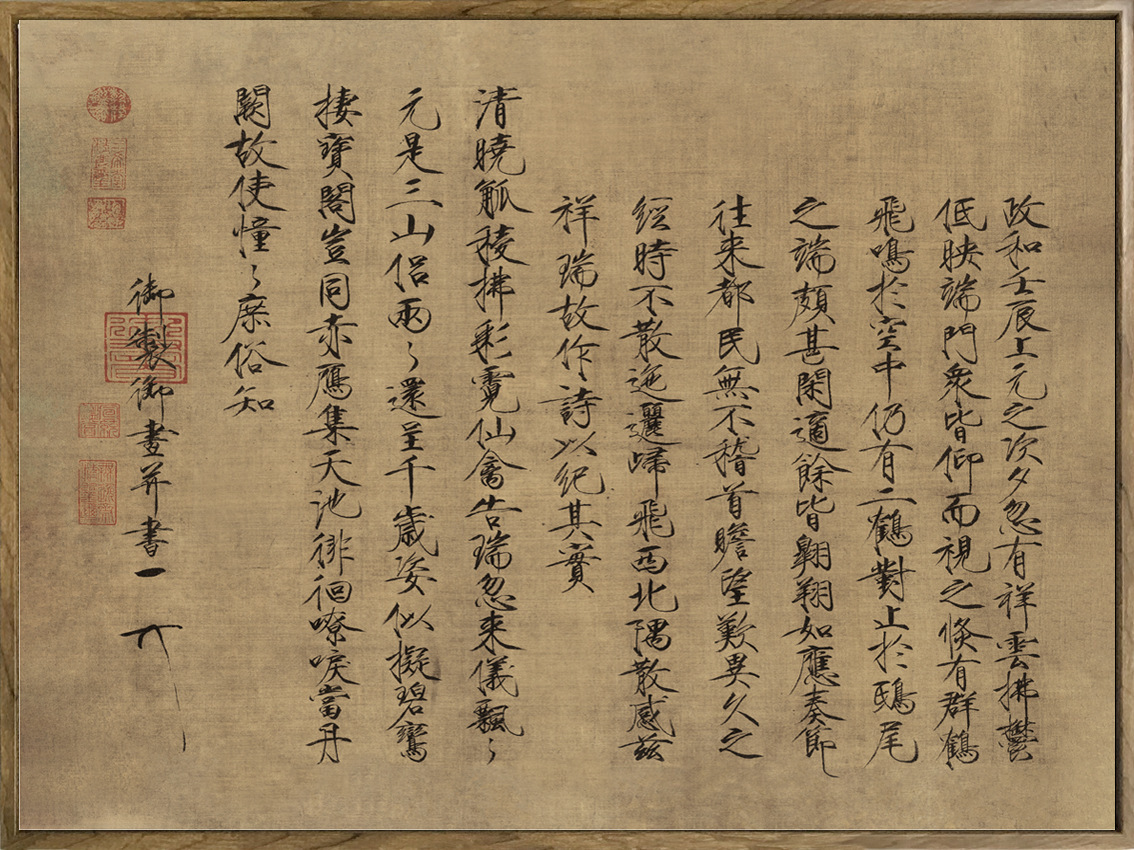 政和壬辰上元之次夕忽有祥雲拂鬱
低映端門衆皆仰而視之倏有群鶴
飛鳴於空中仍有二鶴對止於鴟尾
之端頗甚閑適餘皆翱翔如應奏節
往来都民無不稽首瞻望歎異久之
經時不散迤邐歸飛西北隅散感兹
祥瑞故作詩以紀其實
清曉觚稜拂彩霓仙禽告瑞忽来儀飄々
元是三山侶兩々還呈千歲姿似擬碧鸞
棲寶閣豈同赤鴈集天池徘徊嘹唳當丹
闕故使憧々庶俗知
御製御畫并書